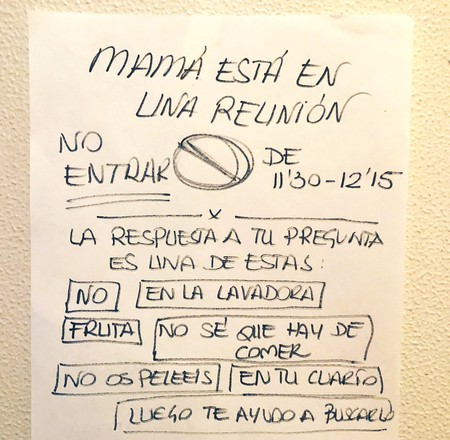 MAMÁ ESTÁ EN
UNA REUNIÓN
NO ENTRAR DE 11'30-12'15
x
LA RESPUESTA A TU PREGUNTA
ES UNA DE ESTAS:
NO EN LA LAVADORA
FRUTA NO SÉ QUE HAY DE
COMER
NO OS PELEEIS EN TU CUARTO
LUEGO TE AYUDO A BUSCARLO